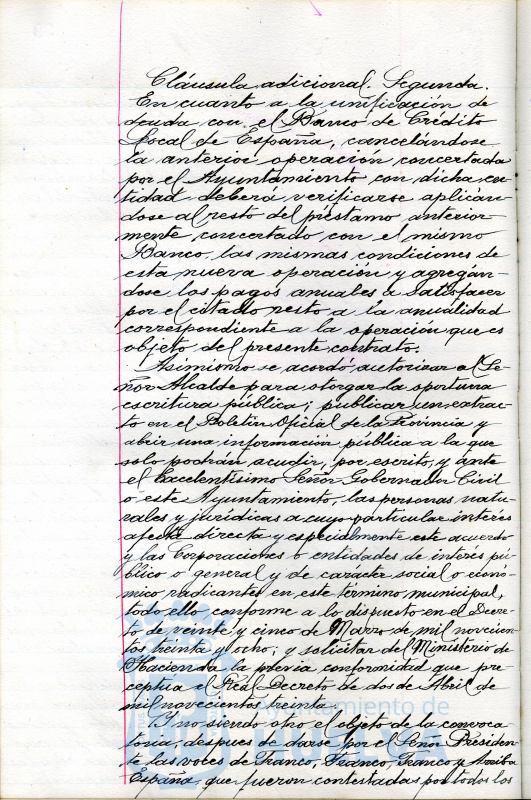 Cláusula adicional. Segunda.
En cuanto a la unificación de
deuda con el Banco de Crédito
Local de España, cancelándose
la anterior operación concertada
por el Ayuntamiento con dicha en-
tidad deberá verificarse aplicán-
dose al resto del préstamo anterior-
mente concertado con el mismo
Banco, las mismas condiciones de
esta nueva operación y agregán-
dose los pagos anuales a satisfacer
por el citado resto a la anualidad
correspondiente a la operación que es
objeto del presente contrato.
Asimismo se acordó autorizar al Se-
ñor Alcalde para otorgar la oportuna
escritura pública; publicar un extrac-
to en el Boletín Oficial de la Provincia y
abrir una información pública a la que
solo podrán acudir, por escrito, y ante
el Excelentísimo Señor Gobernador Civil
o este Ayuntamiento, las personas natu-
rales y jurídicas a cuyo particular interés
afecta directa y especialmente este acuerdo
y las Corporaciones o entidades de interés pú-
blico o general y de carácter social o econó-
mico radicantes en este término municipal,
todo ello conforme a lo dispuesto en el Decre-
to de veinte y cinco de Marzo de mil novecien-
tos treinta y ocho; y solicitar del Ministerio de
Hacienda la previa conformidad que pre-
ceptúa el Real Decreto de dos de Abril de
mil novecientos treinta.
Y no siendo otro el objeto de la convoca-
toria, después de darse por el Señor Presiden-
te las voces de Franco, Franco, Franco y Arriba
España, que fueron contestadas por todos los
Ayuntamiento de
HUELVA